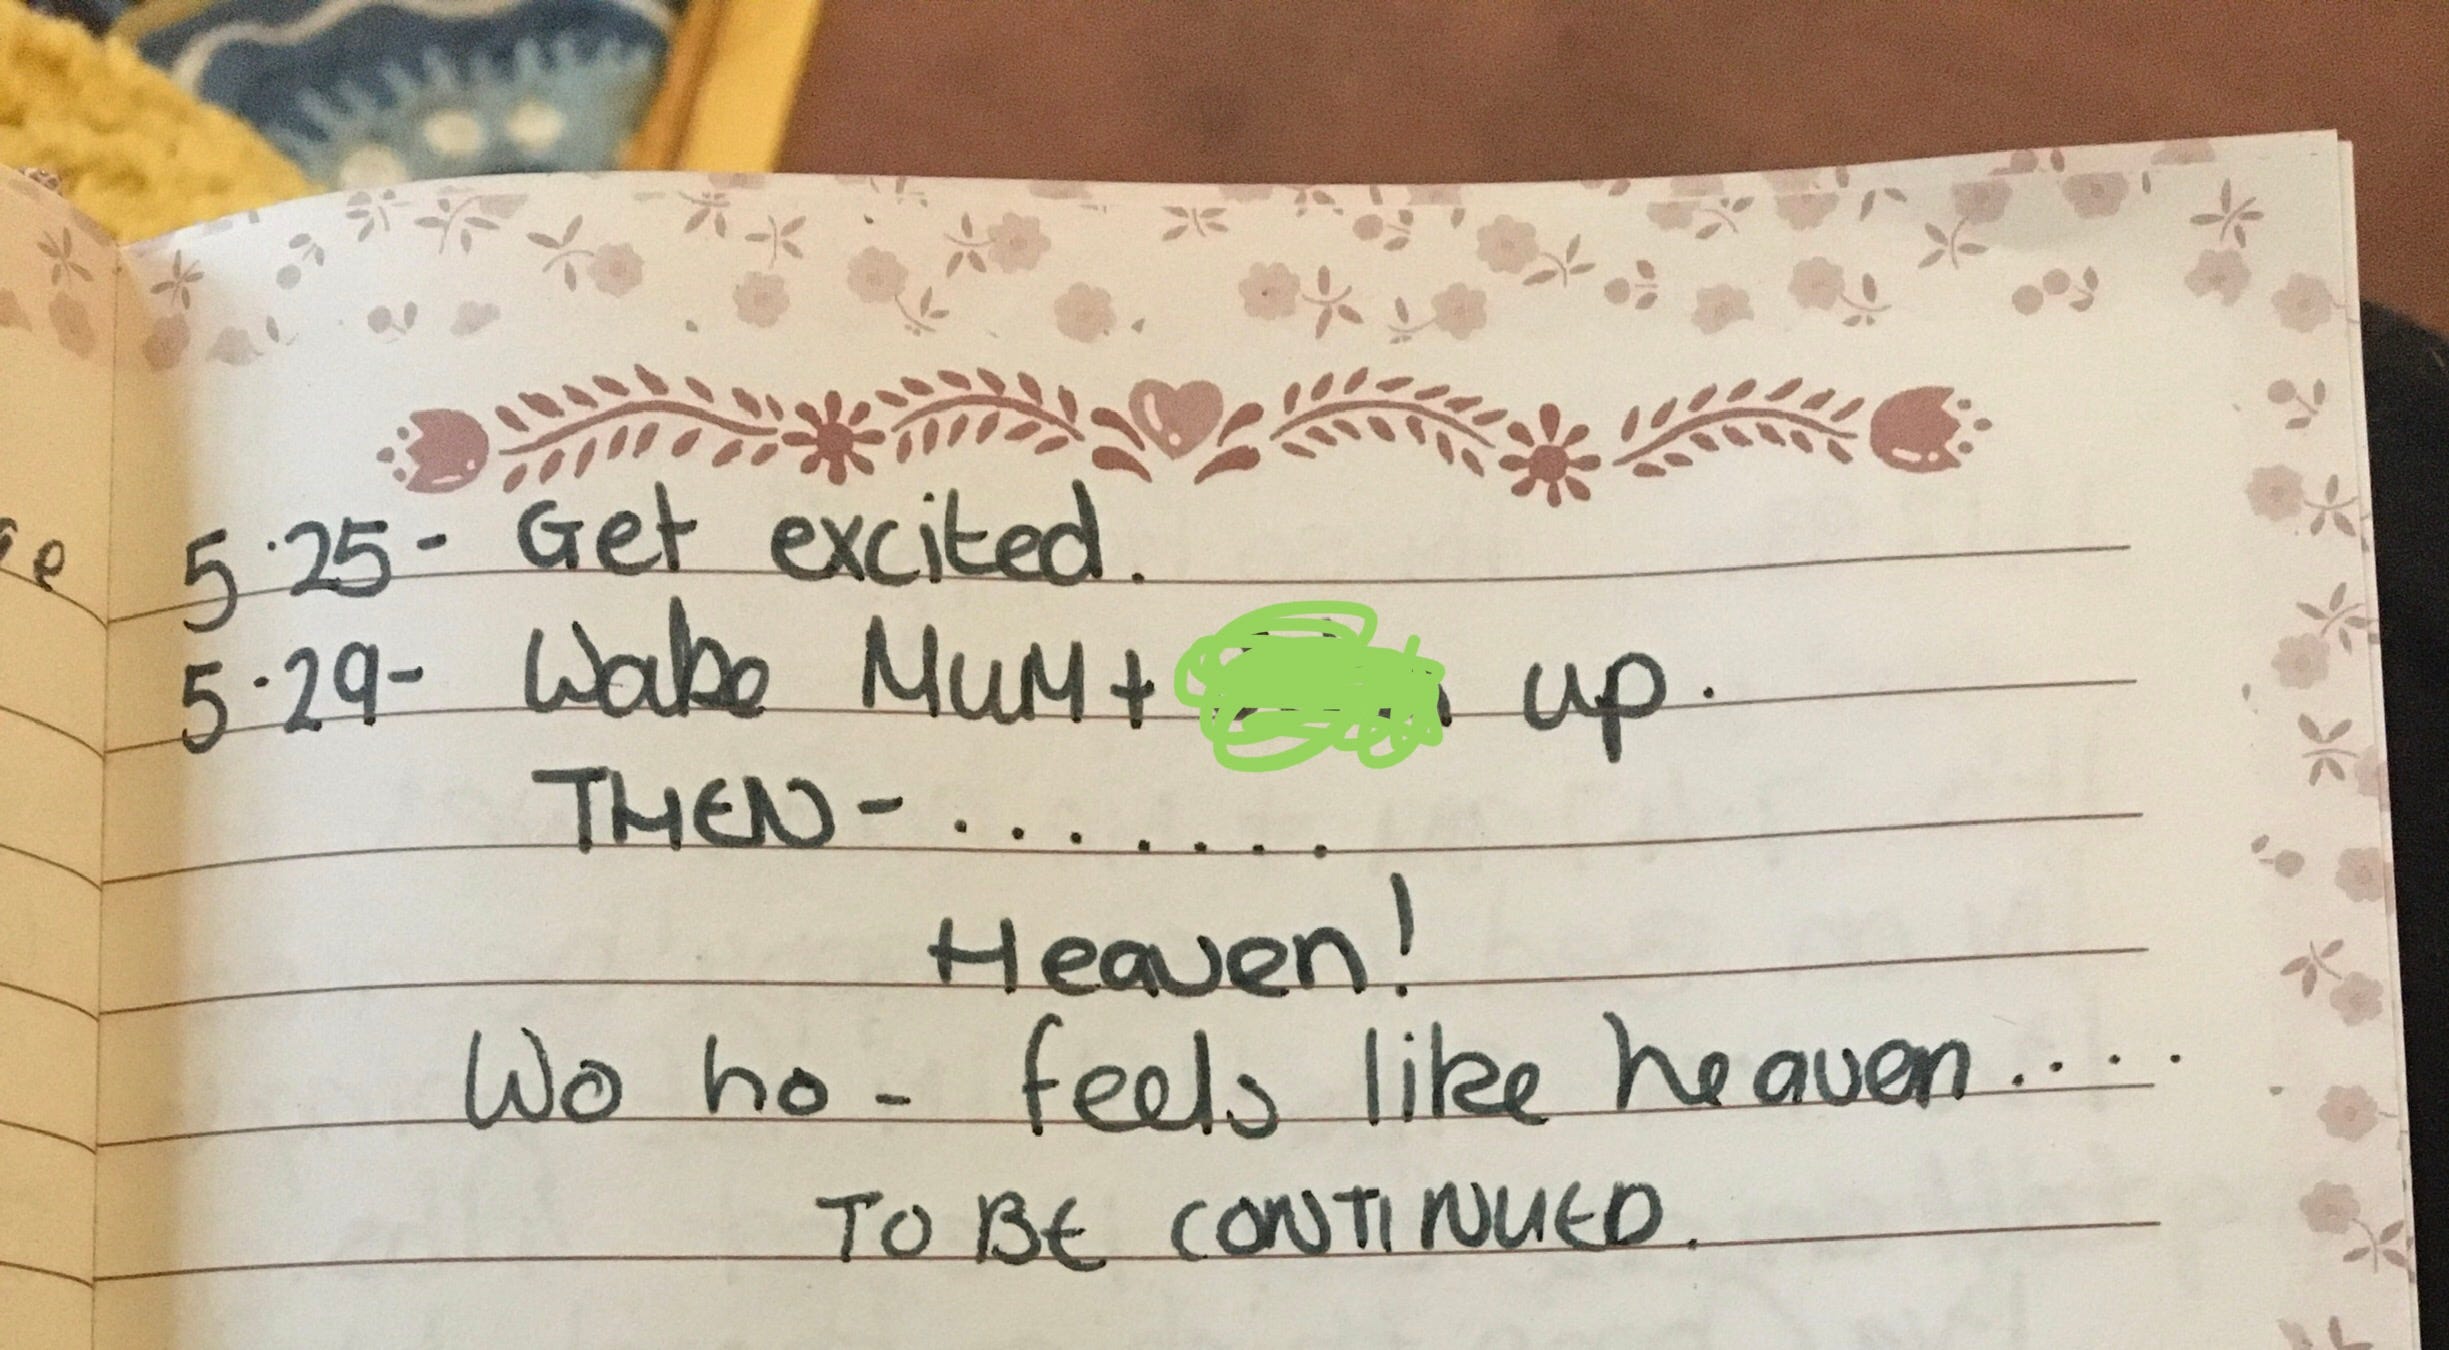 5.25- Get excited.
5.29- Wake MUM + up.
THEN-.......
Heaven!
Wo ho - feels like heaven....
TO BE CONTINUED.